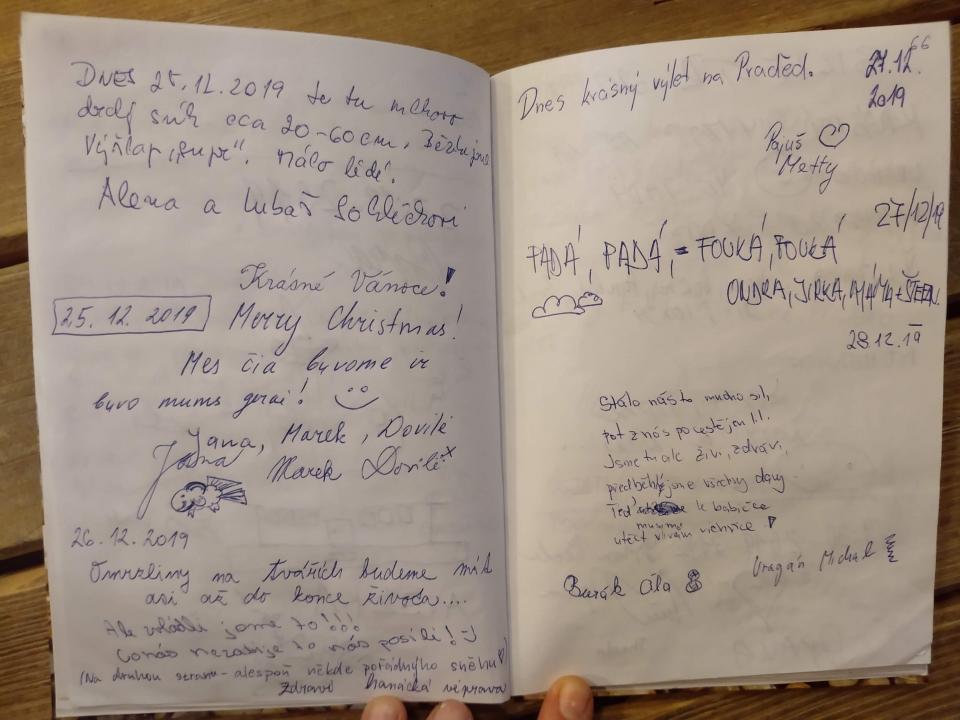 DNES 25.12.2019 je tu
sníh cca 20-60cm.
Výšlap „super“. Málo lidí.
Alena a Luboš
Krásné Vánoce!
25. 12. 2019
Merry Christmas!
Mes čia buvome ir
buvo mums gerai!
Jana, Marek, Dovilė
Jana Marek Dovilė
26.12.2019
Omrzliny na tvářích budeme mít
asi až do konce života....
Ale zvládli jsme to!!!
Co nás nezabije to nás posílí!
(Na druhou stranu - alespoň někde pořádnýho sněhu)
Zdraví hanácká výprava
66
Dnes krásný výlet na Praděd.
27.12.
2019
Pajuš
Metty
27/12/19
PADÁ, PADÁ, = FOUKÁ, FOUKÁ
ONDRA, JIRKA,
28.12.19
Stálo nás to mnoho sil,
pot z nás po cestě jen lil.
Jsme tu ale živí, zdrávi,
předběhli jsme všechny davy.
Teď k babičce
musíme
utéct vichřice!
Barák Ála
Uragán Michal